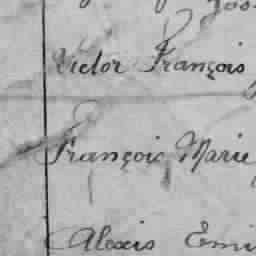 Victor François
François Marie
Alexis Emi